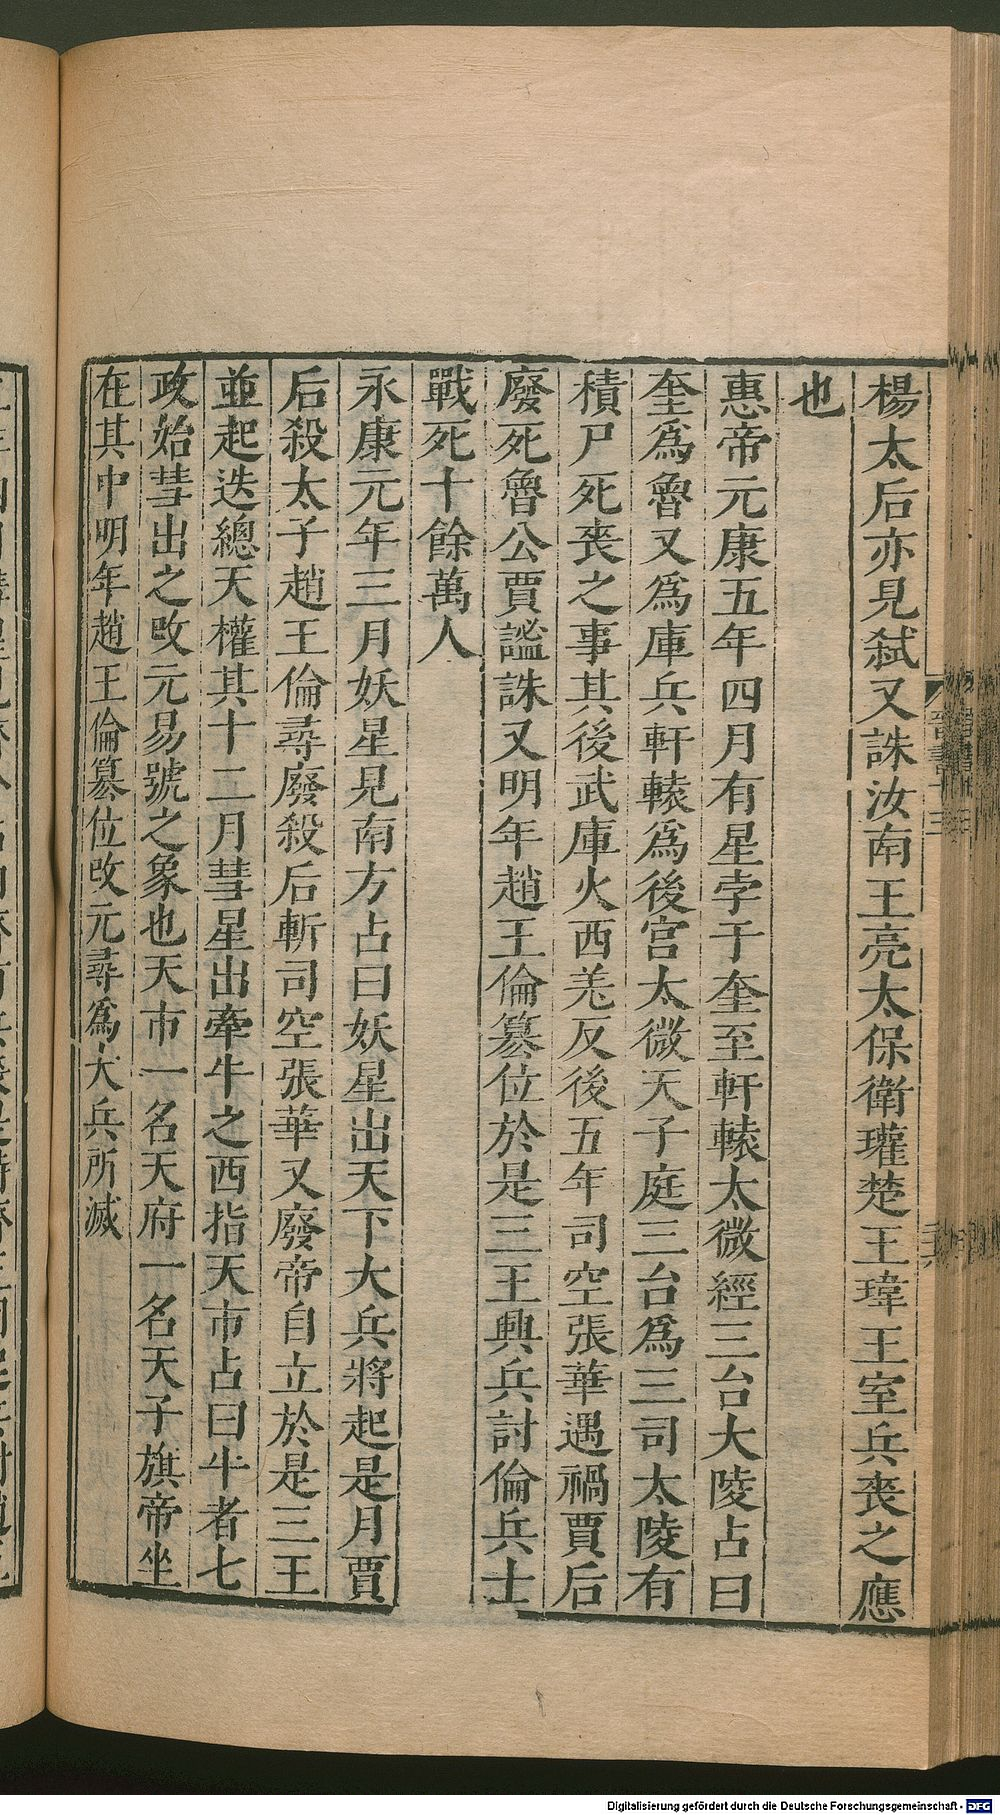 楊太后亦見弑又誅汝南王亮太保衛瓘楚王瑋王室兵喪之應
也
惠帝元康五年四月有星孛于奎至軒轅太微經三台大陵占曰
奎爲魯又爲庫兵軒轅爲後宮太微天子庭三台爲三司太陵有
積尸死喪之事其後武庫火西羌反後五年司空張華遇禍賈后
廢死魯公賈謐誅又明年趙王倫篡位於是三王興兵討倫兵士
戰死十餘萬人
永康元年三月妖星見南方占曰妖星出天下大兵將起是月賈
后殺太子趙王倫尋廢殺后斬司空張華又廢帝自立於是三王
並起迭總天權其十二月彗星出牽牛之西指天市占曰牛者七
政始彗出之改元易號之象也天市一名天府一名天子旗帝坐
在其中明年趙王倫篡位改元尋爲大兵所滅
晉書十三
Digitalisierung gefördert durch die Deutsche Forschungsgemeinschaft - DFG